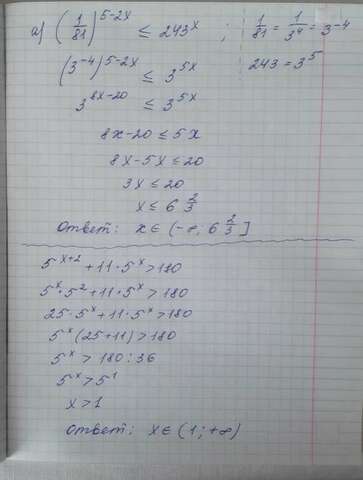 а) (1/81)^(5-2x) ≤ 243^x ; 1/81 = 1/3^4 = 3^(-4)
(3^(-4))^(5-2x) ≤ 3^(5x) 243 = 3^5
3^(8x-20) ≤ 3^(5x)
8x-20 ≤ 5x
8x-5x ≤ 20
3x ≤ 20
x ≤ 6 2/3
Ответ: x ∈ (-∞; 6 2/3]
5^(x+2) + 11·5^x > 180
5^x · 5^2 + 11·5^x > 180
25·5^x + 11·5^x > 180
5^x (25+11) > 180
5^x > 180 : 36
5^x > 5^1
x > 1
Ответ: x ∈ (1; +∞)